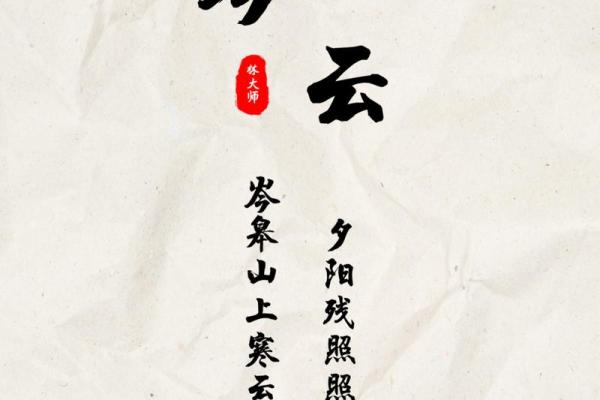 云
林大师
夕阳残照照
岑皋山上寒云